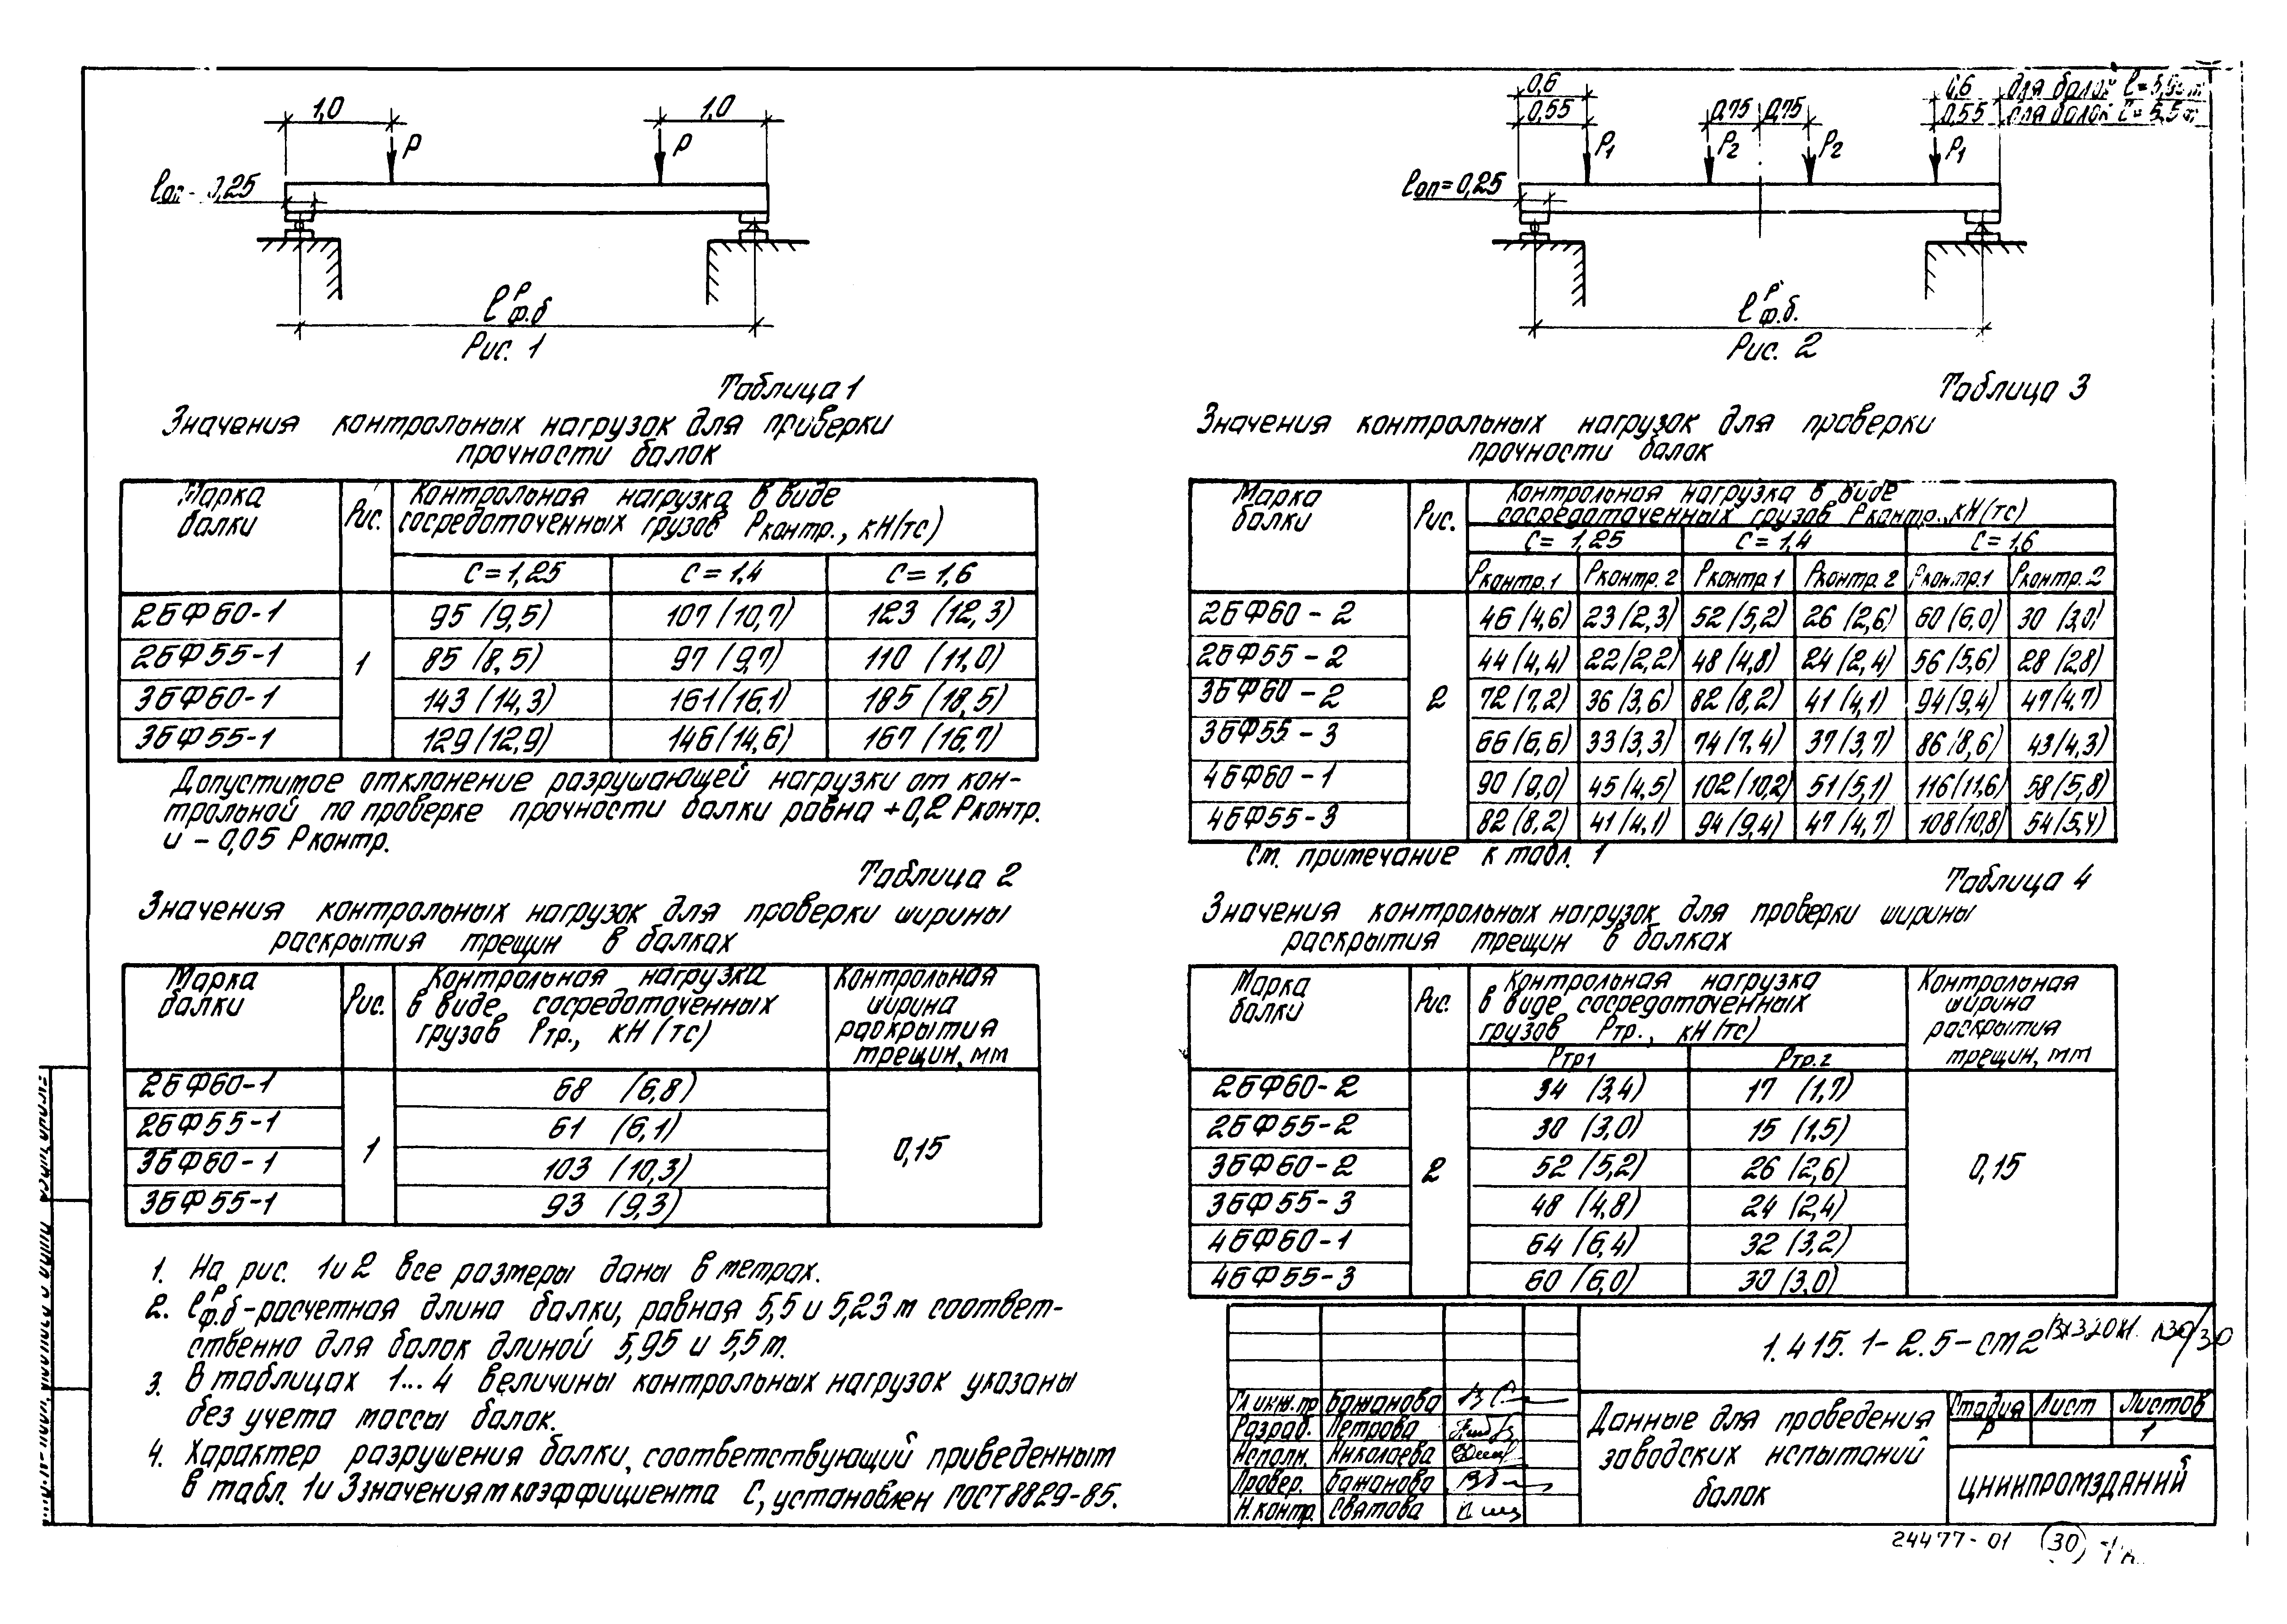 1,0
1,0
P
P
ℓоп = 0,25
ℓ ф.б р
Рис. 1
Таблица 1
Значения контрольных нагрузок для проверки
прочности балок
Марка балки
Рис.
Контрольная нагрузка в виде
сосредоточенных грузов Рконтр., кН/тс)
С = 1,25 С = 1,4 С = 1,6
2БФ60-1 95 (9,5) 107 (10,7) 123 (12,3)
2БФ55-1 1 85 (8,5) 97 (9,7) 110 (11,0)
3БФ60-1 143 (14,3) 161 (16,1) 185 (18,5)
3БФ55-1 129 (12,9) 146 (14,6) 167 (16,7)
Допустимое отклонение разрушающей нагрузки от кон-
трольной по проверке прочности балки равна +0,2 Рконтр.
и - 0,05 Рконтр.
Таблица 2
Значения контрольных нагрузок для проверки ширины
раскрытия трещин в балках
Марка балки
Рис.
Контрольная нагрузка
в виде сосредоточенных
грузов Ртр., кН/тс)
Контрольная
ширина
раскрытия
трещин, мм
2БФ60-1 68 (6,8)
2БФ55-1 61 (6,1)
1 0,15
3БФ60-1 103 (10,3)
3БФ55-1 93 (9,3)
1. На рис. 1 и 2 все размеры даны в метрах.
2. ℓ ф.б р - расчетная длина балки, равная 5,5 и 5,23 м соответ-
ственно для балок длиной 5,95 и 5,5 м.
3. В таблицах 1...4 величины контрольных нагрузок указаны
без учета массы балок.
4. Характер разрушения балки, соответствующий приведенным
в табл. 1 и 3 значениям коэффициента С, установлен ГОСТ 8829-85.
0,6 0,6 для балок ℓ = 5,95 м
0,55 0,75 0,75 0,55 для балок ℓ = 5,5 м
P1 P2 P2 P1
ℓоп = 0,25
ℓ ф.б. р
Рис. 2
Таблица 3
Значения контрольных нагрузок для проверки
прочности балок
Марка балки
Рис.
Контрольная нагрузка в виде
сосредоточенных грузов Рконтр., кН/тс)
С = 1,25 С = 1,4 С = 1,6
Рконтр.1 Рконтр.2 Рконтр.1 Рконтр.2 Рконтр.1 Рконтр.2
2БФ60-2 46 (4,6) 23 (2,3) 52 (5,2) 26 (2,6) 60 (6,0) 30 (3,0)
2БФ55-2 44 (4,4) 22 (2,2) 48 (4,8) 24 (2,4) 56 (5,6) 28 (2,8)
3БФ60-2 2 72 (7,2) 36 (3,6) 82 (8,2) 41 (4,1) 94 (9,4) 47 (4,7)
3БФ55-3 66 (6,6) 33 (3,3) 74 (7,4) 37 (3,7) 86 (8,6) 43 (4,3)
4БФ60-1 90 (9,0) 45 (4,5) 102 (10,2) 51 (5,1) 116 (11,6) 58 (5,8)
4БФ55-3 82 (8,2) 41 (4,1) 94 (9,4) 47 (4,7) 108 (10,8) 54 (5,4)
См. примечание к табл. 1
Таблица 4
Значения контрольных нагрузок для проверки ширины
раскрытия трещин в балках
Марка балки
Рис.
Контрольная нагрузка
в виде сосредоточенных
грузов Ртр., кН/тс)
Контрольная
ширина
раскрытия
трещин, мм
Ртр1 Ртр.2
2БФ60-2 34 (3,4) 17 (1,7)
2БФ55-2 30 (3,0) 15 (1,5)
3БФ60-2 2 52 (5,2) 26 (2,6) 0,15
3БФ55-3 48 (4,8) 24 (2,4)
4БФ60-1 64 (6,4) 32 (3,2)
4БФ55-3 60 (6,0) 30 (3,0)
1.415.1-2.5-СМ2
Гл инж.пр Бажанова
Разраб. Петрова
Исполн. Николаева
Провер. Бажанова
Н.контр. Святова
Данные для проведения
заводских испытаний
балок
Стадия Лист Листов
Р 1
ЦНИИПРОМЗДАНИЙ
24477-01 30